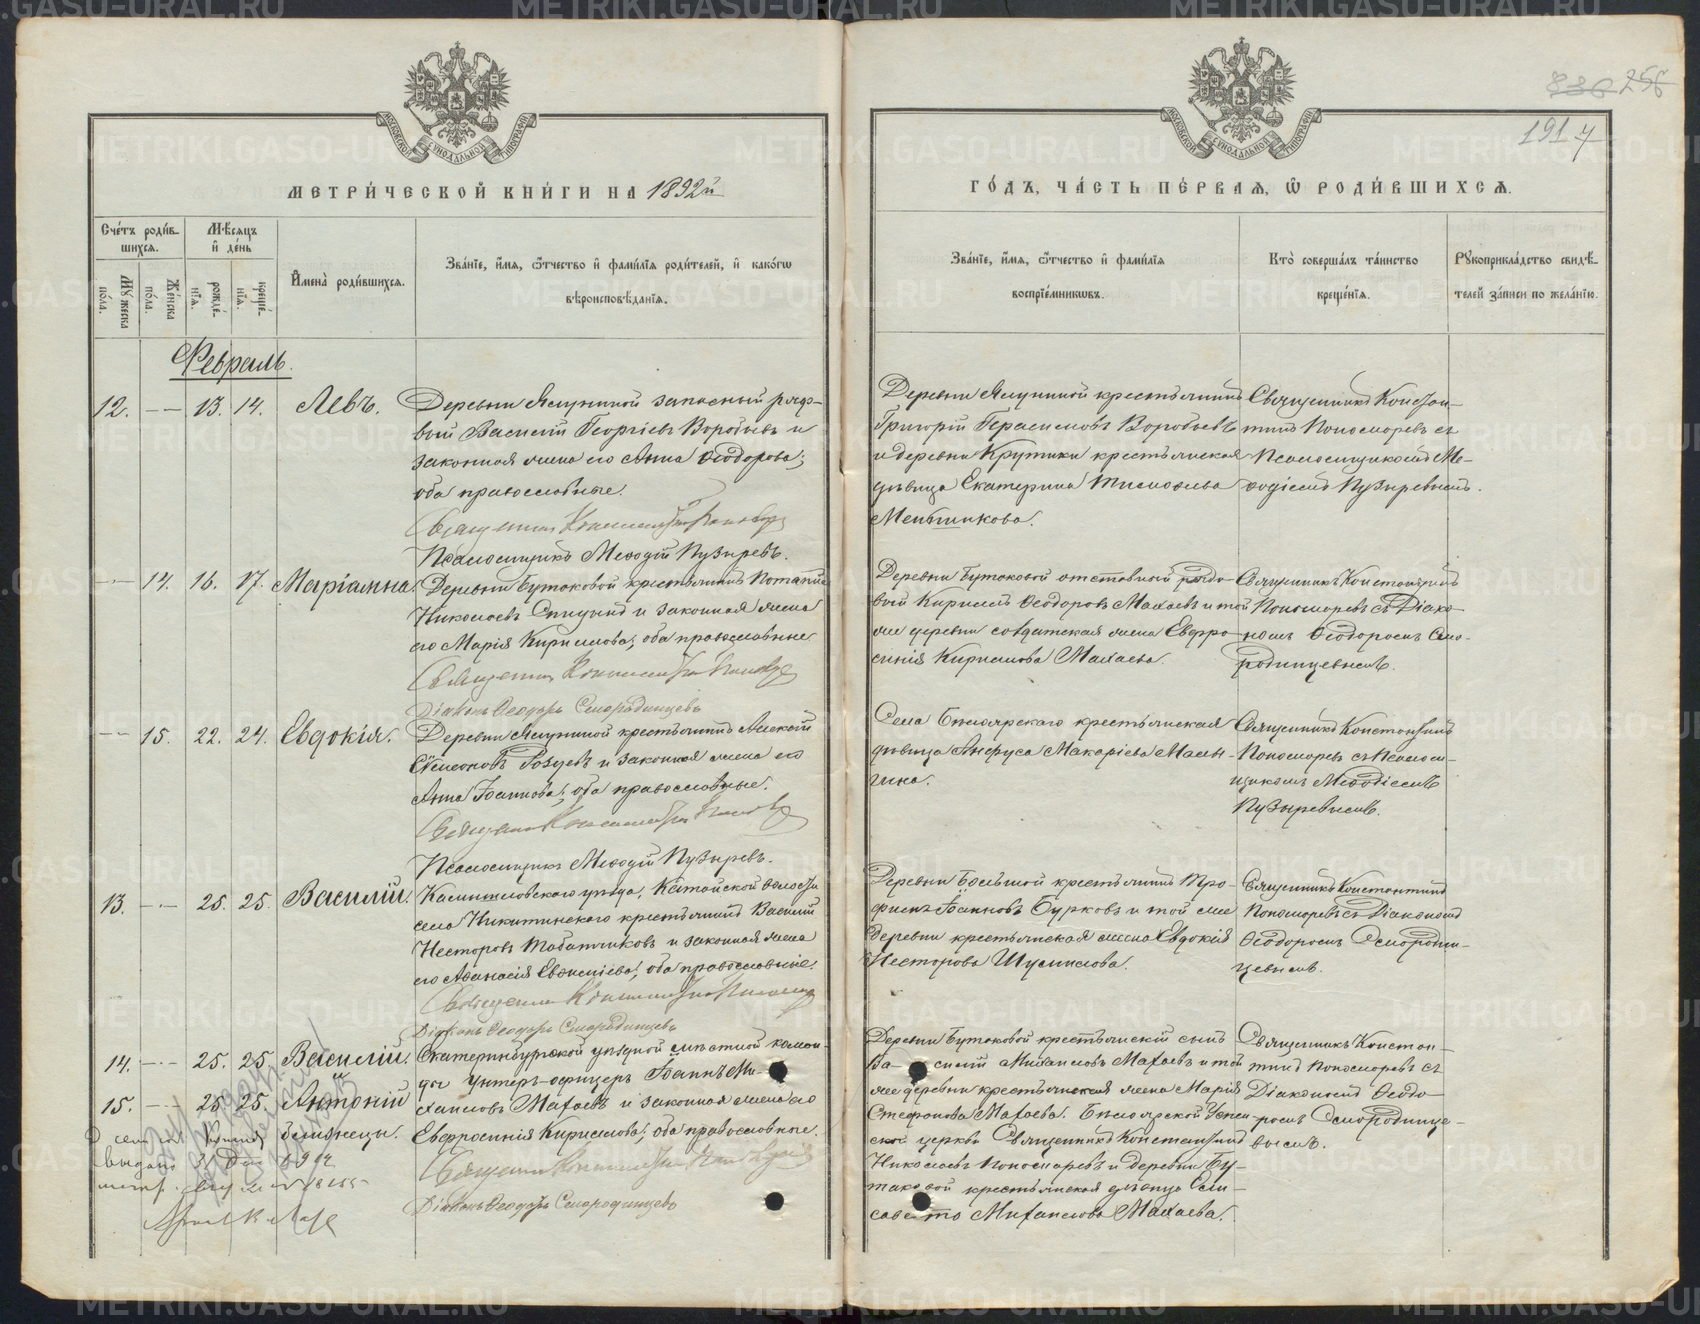 МЕТРИ́ЧЕСКОЙ КНИ́ГИ НА 1892й
Сче́тъ роди́в-
шихся.
Мѣ́сяцъ
и҆ де́нь
Мꙋ́жеска
по́ла.
Же́нска
по́ла.
рожде́-
нїя.
креще́-
нїя.
И҆мена̀ роди́вшихся.
Зва́нїе, и҆́мя, ѻ҆́тчество и҆ фами́лїя роди́телей, и҆ како́гѡ
вѣроисповѣ́данїя.
Февраль.
12. — — 13. 14. Левъ.
Деревни Ялуниной запасный рядо-
вой Василій Георгіевъ Воробьевъ и
законная жена его Анна Ѳеодорова;
оба православные.
Священникъ Константинъ Пономаревъ
Псаломщикъ Меѳодій Пузыревъ.
— 14. 16. 17. Маріамна.
Деревни Бутаковой крестьянинъ Потапій
Николаевъ и законная жена
его Марія Кириллова; оба православные
Священникъ Константинъ Пономаревъ
Діаконъ Ѳеодоръ Смородинцевъ
— 15. 22. 24. Евдокія.
Деревни Ялуниной крестьянинъ Алексій
Симеоновъ и законная жена его
Анна Іоаннова; оба православные.
Священникъ Константинъ Пономаревъ
Псаломщикъ Меѳодій Пузыревъ.
13. — 25. 25. Василій.
Камышловскаго уѣзда, Катайской волости
села Никитинскаго крестьянинъ Василій
Несторовъ Табатчиковъ и законная жена
его Аѳанасія Евѳиміева; оба православные.
Священникъ Константинъ Пономаревъ
Діаконъ Ѳеодоръ Смородинцевъ
14. — 25. 25. Василій.
15. — 25. 25. Антоній
близнецы.
Екатеринбургской уѣздной мѣстной коман-
ды унтеръ-офицеръ Іоаннъ Ми-
хаиловъ Махаевъ и законная жена его
Евфросинія Кириллова; оба православные.
Священникъ Константинъ Пономаревъ
Діаконъ Ѳеодоръ Смородинцевъ
256
191
ГО́ДЪ, ЧА́СТЬ ПЕ́РВАЯ, Ѡ҆ РОДИ́ВШИХСЯ.
Зва́нїе, и҆́мя, ѻ҆́тчество и҆ фами́лїя
воспрїе́мникѡвъ.
Кто̀ соверша́лъ та́инство
креще́нїя.
Рꙋкоприкла́дство свидѣ́-
телей за́писи по жела́нїю.
Деревни Ялуниной крестьянинъ
Григорій Герасимовъ Воробьевъ
и деревни Крутихи крестьянская
дѣвица Екатерина Тимофеева
Меньшикова.
Священникъ Констан-
тинъ Пономаревъ съ
Псаломщикомъ Ме-
ѳодіемъ Пузыревымъ.
Деревни Бутаковой отставный рядо-
вый Кириллъ Ѳеодоровъ Махаевъ и той
же деревни солдатская жена Евфро-
синія Кириллова Махаева.
Священникъ Константинъ
Пономаревъ съ Діако-
номъ Ѳеодоромъ Смо-
родинцевымъ.
Села Бѣлоярскаго крестьянская
дѣвица Анфуса Макаріева Малы-
гина.
Священникъ Константинъ
Пономаревъ съ Псалом-
щикомъ Меѳодіемъ
Пузыревымъ.
Деревни Большой крестьянинъ Тро-
фимъ Іоанновъ Бурковъ и той же
деревни крестьянская жена Евдокія
Несторова Шумилова.
Священникъ Константинъ
Пономаревъ съ Діакономъ
Ѳеодоромъ Смородин-
цевымъ.
Деревни Бутаковой крестьянскій сынъ
Ва- силій Михаиловъ Махаевъ и той
же деревни крестьянская жена Марія
Стефанова Махаева. Бѣлоярской Успен-
ской церкви Священникъ Константинъ
Николаевъ Пономаревъ и деревни Бу-
таковой крестьянская дѣвица Ели-
савета Михаилова Махаева.
Священникъ Констан-
тинъ Пономаревъ съ
Діакономъ Ѳеодо-
ромъ Смородинце-
вымъ.
METRIKI.GASO-URAL.RU